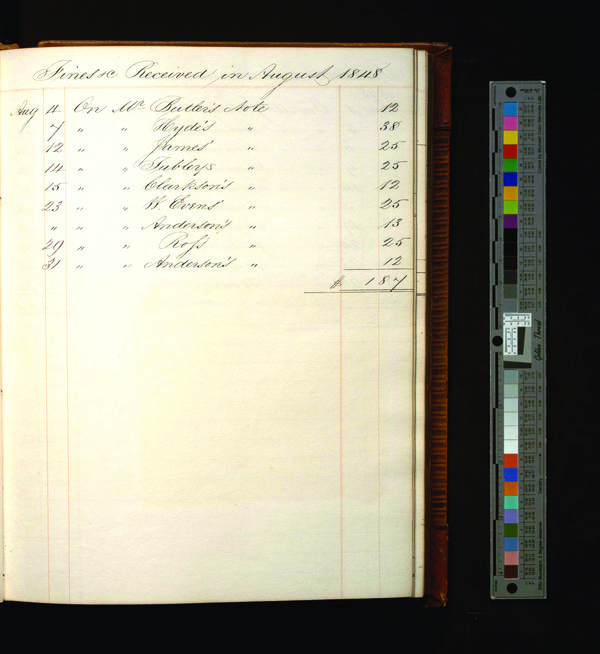 Fines &c Received in August 1848
Aug 4 On Mr Butler's Note 12
7 " " Hyde's " 38
12 " " James' " 25
14 " " Tubleys " 25
15 " " Clarkson's " 12
23 " " W Evens' " 25
" " " Anderson's " 13
29 " " Ross " 25
31 " " Anderson's " 12
$ 1 87
Golden Thread